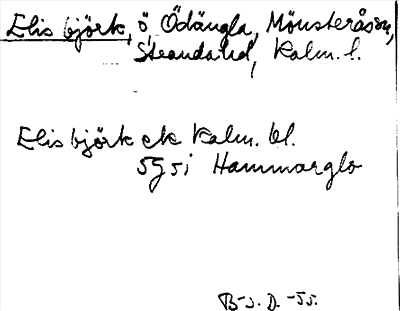 Elisbjörk, ö, Ödängla, Mönsterås sn,
Stranda hd, Kalm. l.
Elisbjörk ek Kalm. bl.
5g 5i Hammarglo
B-s. D. -55.